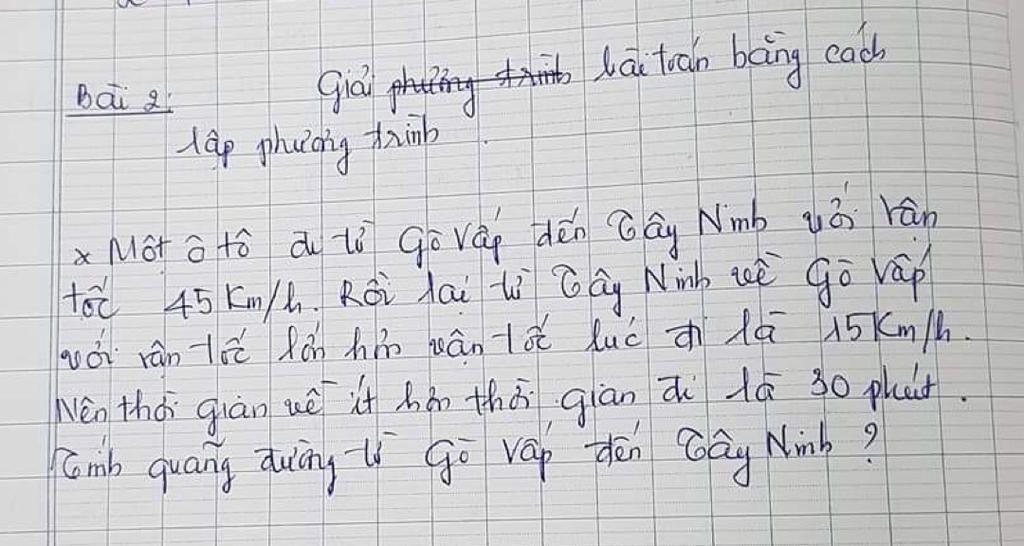 Bài 2: Giải phương trình bài toán bằng cách
lập phương trình.
x Một ô tô đi từ Gò Vấp đến Tây Ninh với vận
tốc 45 Km/h. Rồi lại từ Tây Ninh về Gò Vấp
với vận tốc lớn hơn vận tốc lúc đi là 15 Km/h.
Nên thời gian về ít hơn thời gian đi là 30 phút.
Tính quãng đường từ Gò Vấp đến Tây Ninh ?